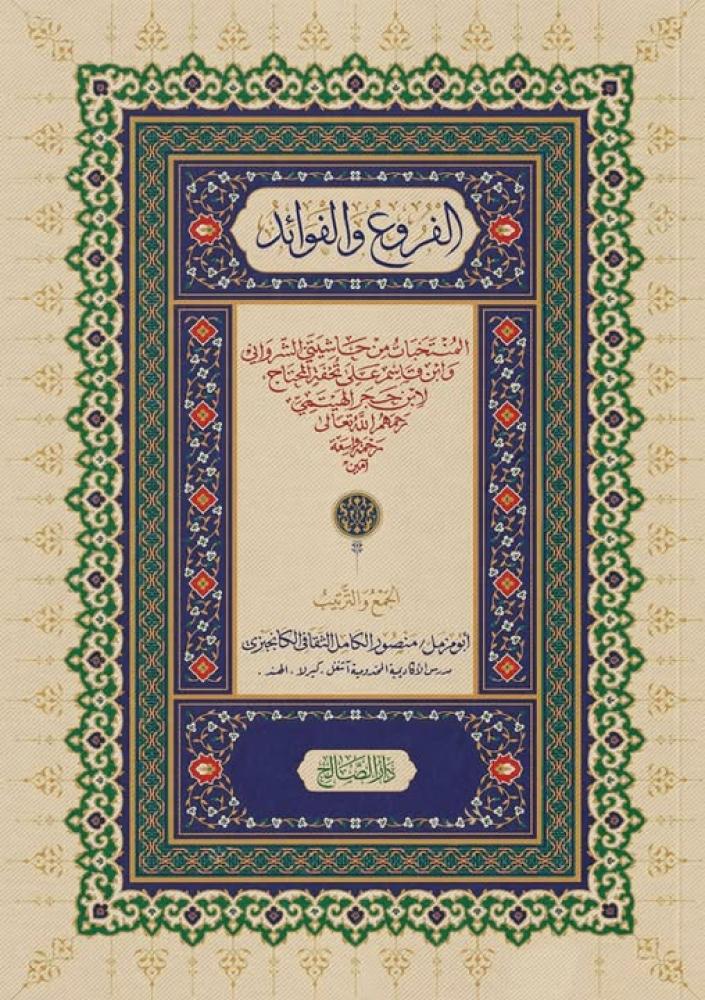 الفُرُوعُ وَالْفَوَائِدُ
المُنْتَخَبَاتُ مِنْ حَاشِيَتَيِ الشَّرْوَانِي
وَابْنِ قَاسِمْ عَلَى تُحْفَةِ المُحْتَاجِ
لِابْنِ حَجَرِ الهَيْتَمِيِّ
رَحِمَهُمُ اللَّهُ تَعَالَى
رَحْمَةً وَاسِعَةً
آمين
الجَمْعُ وَالتَّرْتِيبُ
أبو مزمل/ منصور الكامل الثقافي الكانجيزي
مدرس الأكاديمية المخدومية آتنغل، كيرلا، الهند.
دَارُ الصَّالِحِ